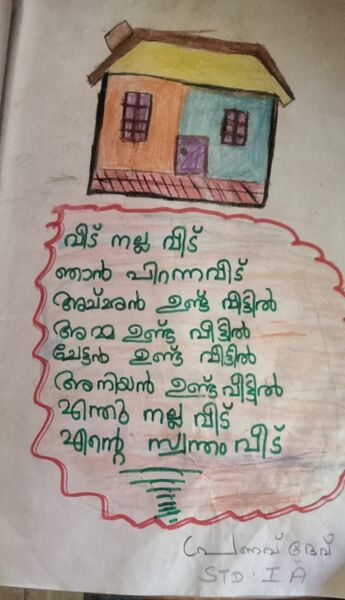 വീട് നല്ല വീട്
ഞാൻ പിറന്നവീട്
അച്ഛൻ ഉണ്ട് വീട്ടിൽ
അമ്മ ഉണ്ട് വീട്ടിൽ
ചേട്ടൻ ഉണ്ട് വീട്ടിൽ
അനിയൻ ഉണ്ട് വീട്ടിൽ
എന്തു നല്ല വീട്
എന്റെ സ്വന്തം വീട്
പ്രണവ് ദേവ്
STD : I A